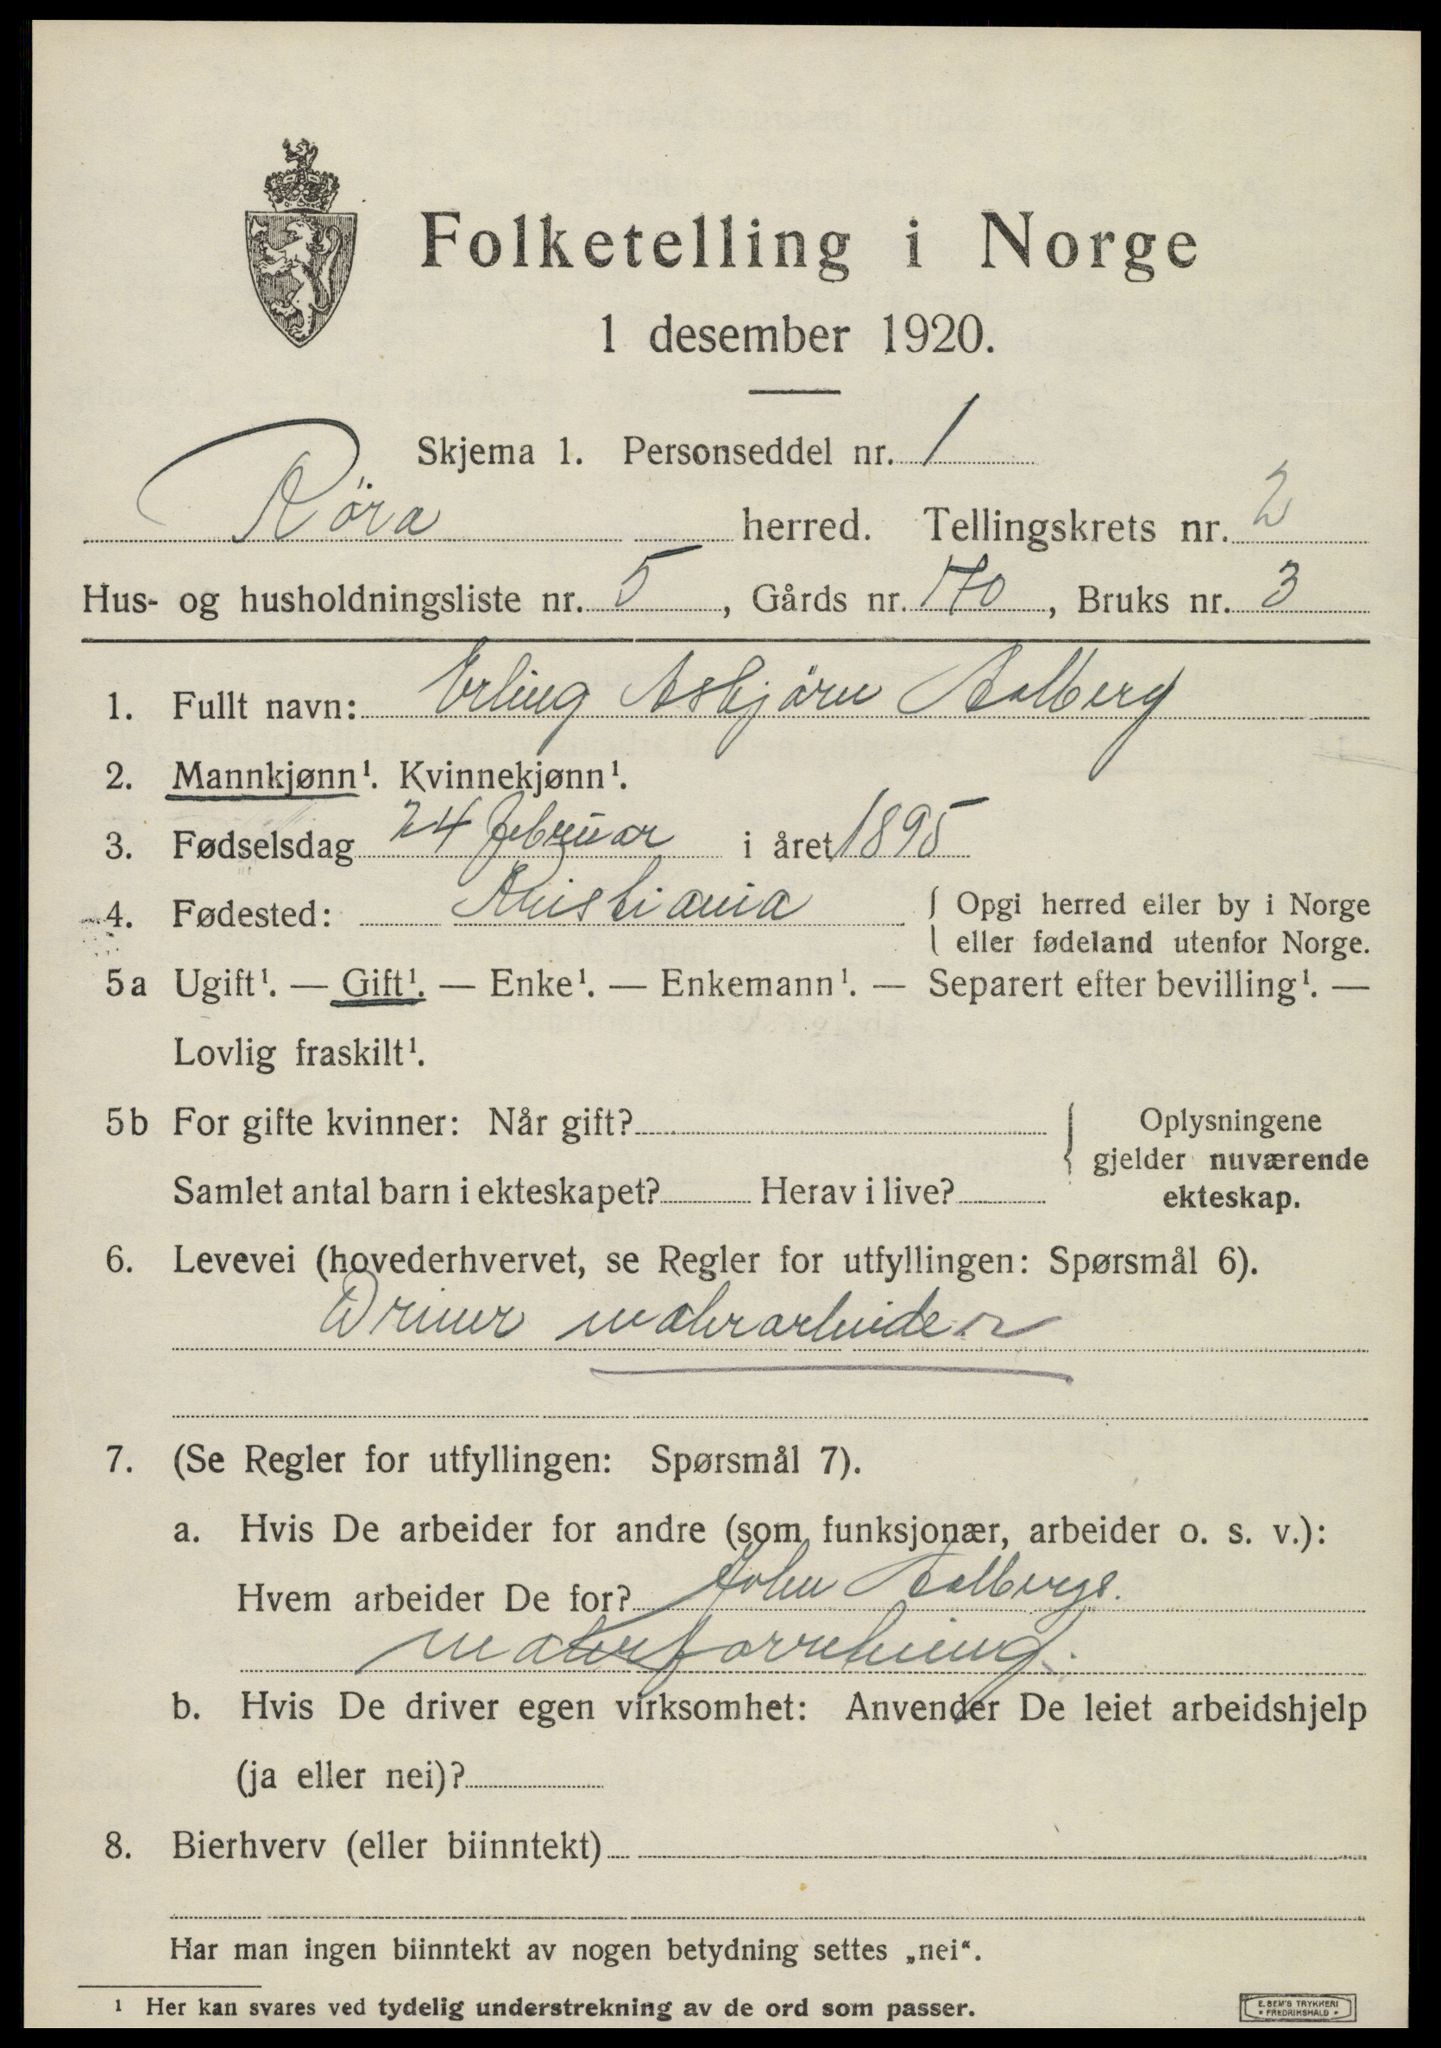 Folketelling i Norge
1 desember 1920.
Skjema 1. Personseddel nr. 1
Røra herred. Tellingskrets nr. 2
Hus- og husholdningsliste nr. 5, Gårds nr. 170, Bruks nr. 3
1. Fullt navn: Erling Asbjörn Aalberg
2. Mannkjønn¹. Kvinnekjønn¹.
3. Fødselsdag 24 februar i året 1895
4. Fødested: Kristiania { Opgi herred eller by i Norge
eller fødeland utenfor Norge.
5a Ugift¹. — Gift¹. — Enke¹. — Enkemann¹. — Separert efter bevilling¹. —
Lovlig fraskilt¹.
5b For gifte kvinner: Når gift? { Oplysningene
gjelder nuværende
Samlet antal barn i ekteskapet? Herav i live? ekteskap.
6. Levevei (hovederhvervet, se Regler for utfyllingen: Spørsmål 6).
Driver
7. (Se Regler for utfyllingen: Spørsmål 7).
a. Hvis De arbeider for andre (som funksjonær, arbeider o. s. v.):
Hvem arbeider De for? John Aalbergs.
b. Hvis De driver egen virksomhet: Anvender De leiet arbeidshjelp
(ja eller nei)?
8. Bierhverv (eller biinntekt)
Har man ingen biinntekt av nogen betydning settes „nei“.
¹ Her kan svares ved tydelig understrekning av de ord som passer.
E. SEM'S TRYKKERI
• FREDRIKSHALD •